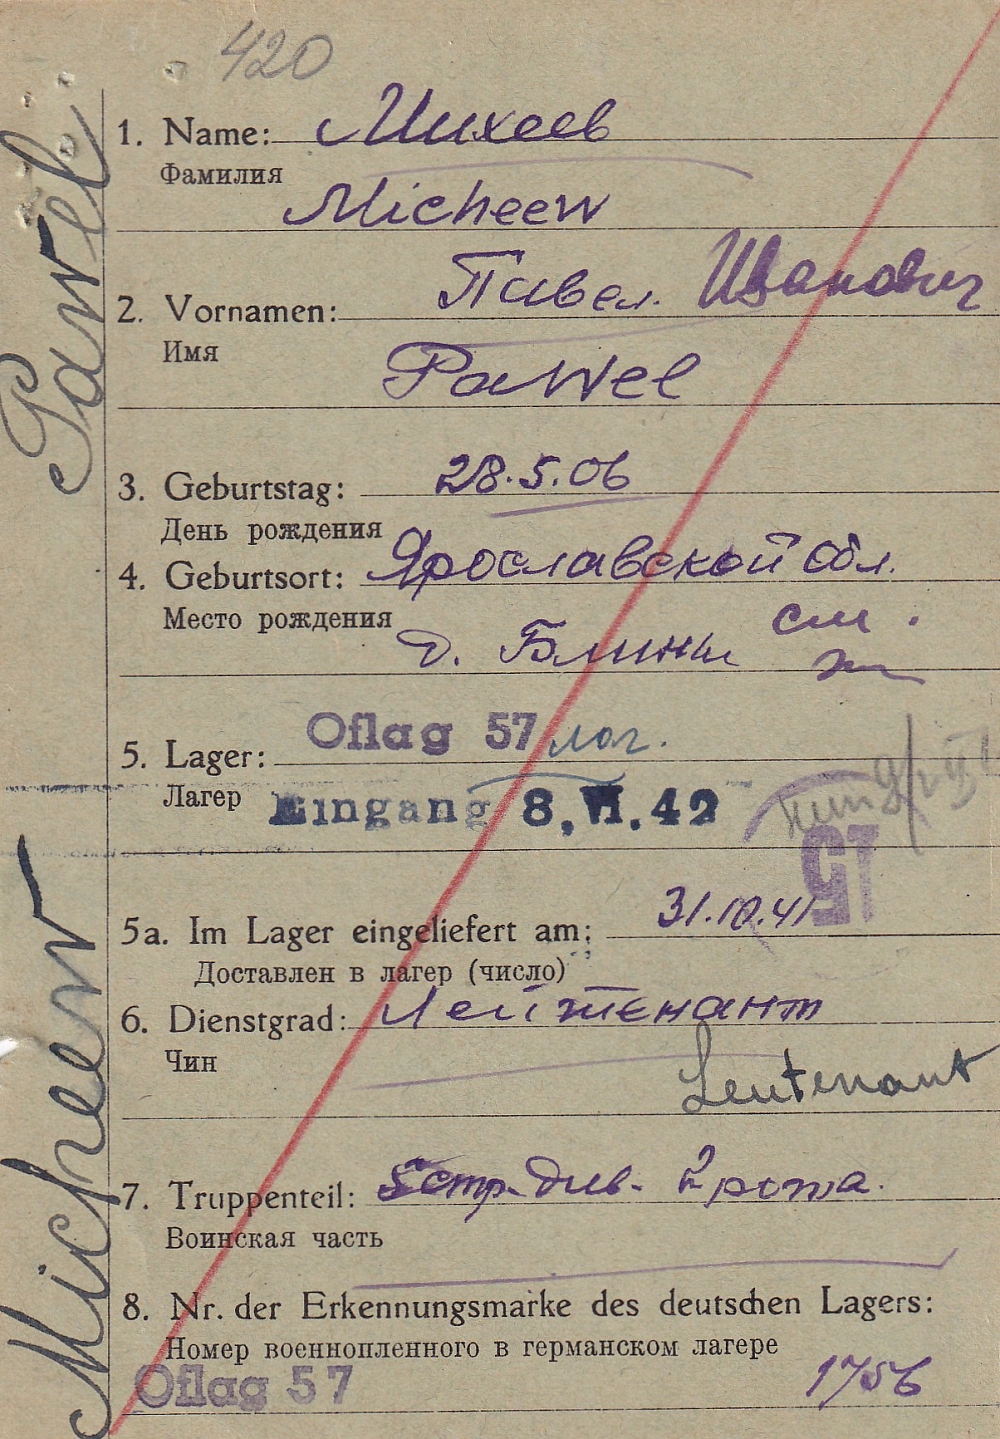 420
1. Name: Михеев
Фамилия
Micheew
2. Vornamen: Павел. Иванович
Имя
Pawel
3. Geburtstag: 28.5.06
День рождения
4. Geburtsort: Ярославской обл.
Место рождения
д. Блины
5. Lager: Oflag 57 лаг.
Лагерь
Eingang 8. VI. 42
57
5a. Im Lager eingeliefert am: 31.10.41
Доставлен в лагер (число)
6. Dienstgrad: Лейтенант
Чин
Leutenant
7. Truppenteil: 5 стр. див. 2 рота.
Воинская часть
8. Nr. der Erkennungsmarke des deutschen Lagers:
Номер военнопленного в германском лагере
Oflag 57 1756
Micheew Pawel